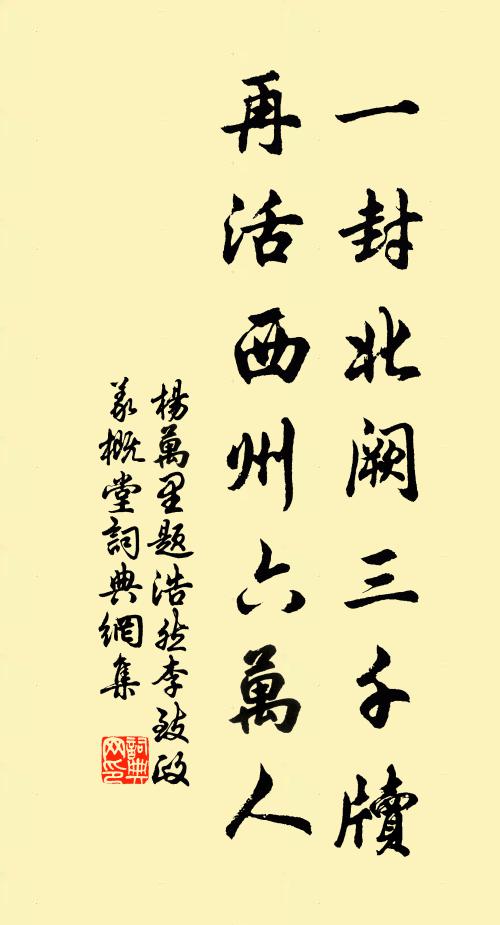 一封北阙三千牘
再活西州六萬人
楊萬里題浩然李致政
義概堂詞典網集
詞典網印